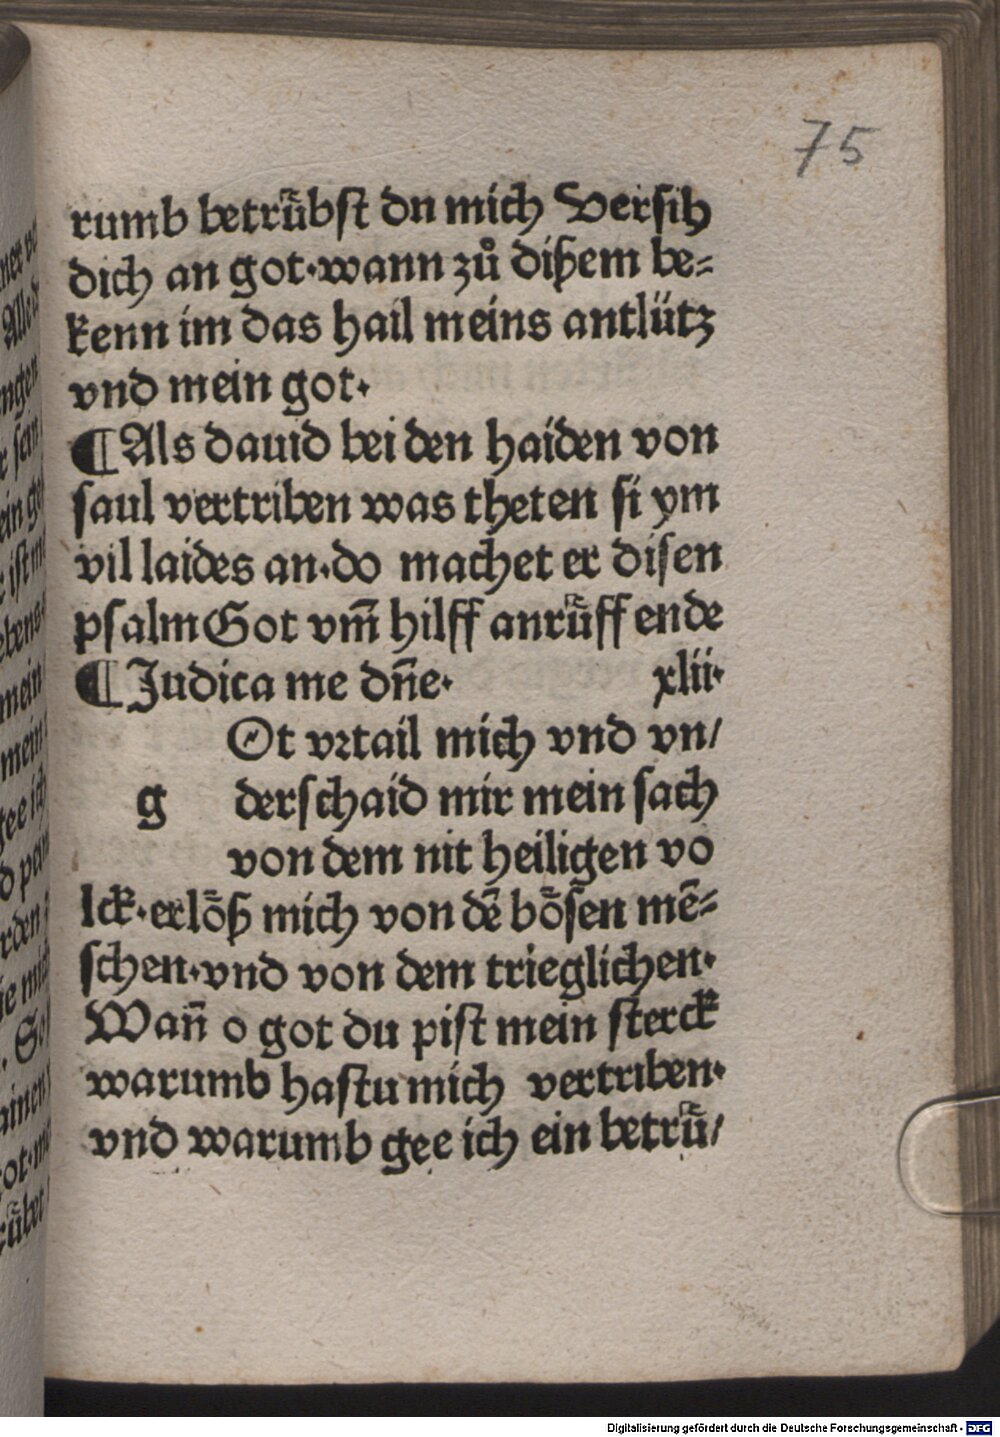 75
rumb betrũbst dn mich Versih
dich an got·wann zů dißem be⸗
kenn im das hail meins antlütz
vnd mein got·
¶Als dauid bei den haiden von
saul vertriben was theten si ym
vil laides an·do machet er disen
psalm Got vm̃ hilff anrũffende
¶Judica me dñe· xlii·
Ot vrtail mich vnd vn/
g derschaid mir mein sach
von dem nit heiligen vo
lck·erlõß mich von dẽ bõsen mẽ⸗
schen·vnd von dem trieglichen·
Wañ o got du pist mein sterck
warumb hastu mich vertriben·
vnd warumb gee ich ein betrũ/
Digitalisierung gefördert durch die Deutsche Forschungsgemeinschaft - DFG